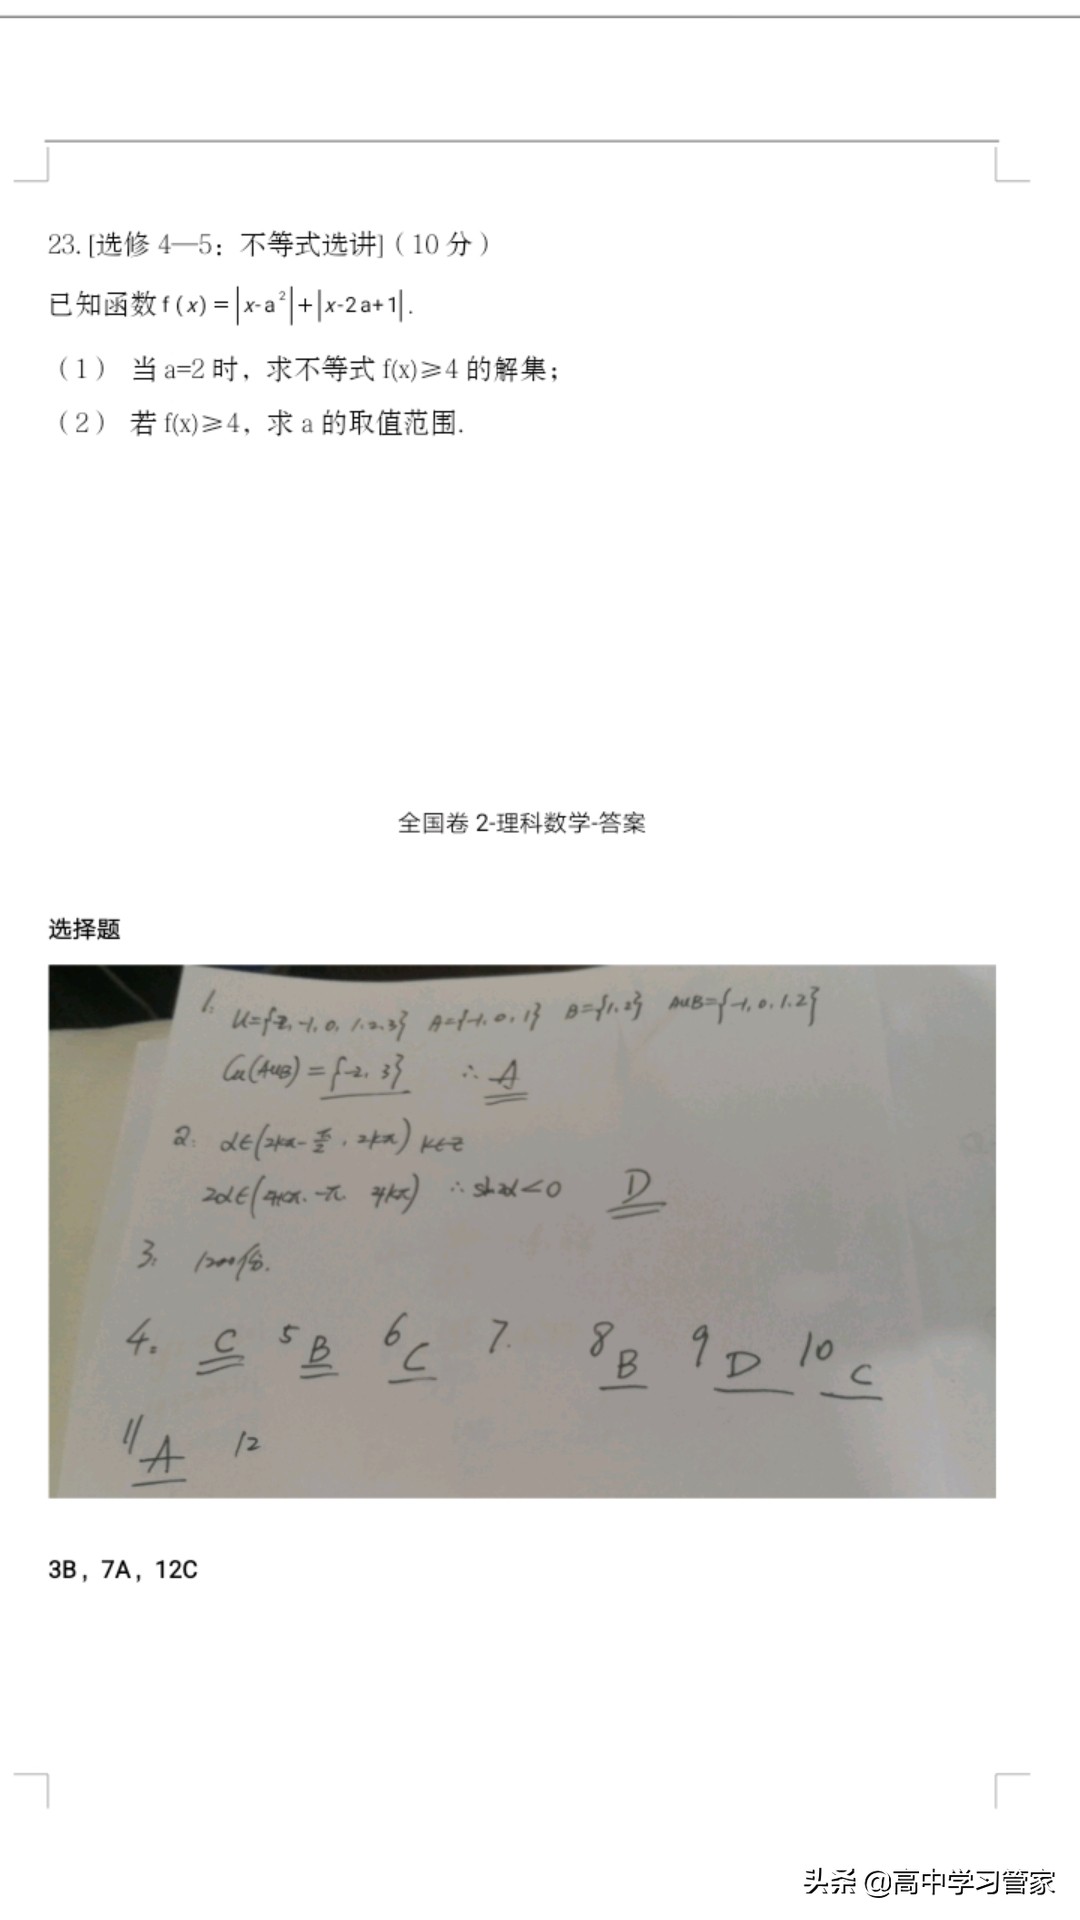 23.[选修 4—5：不等式选讲]（10 分）
已知函数f(x)=|x-a²|+|x-2a+1|.
（1） 当 a=2 时，求不等式 f(x)≥4 的解集；
（2） 若 f(x)≥4，求 a 的取值范围.
全国卷 2-理科数学-答案
选择题
1. U={-2,-1,0,1,2,3} A={-1,0,1} B={1,2} A∪B={-1,0,1,2}
∁u(A∪B)={-2,3} ∴ A
2. α∈(2kπ-π/2, 2kπ) k∈Z
2α∈(4kπ-π, 4kπ) ∴ sin2α<0 D
3. 1200份.
4. C 5 B 6 C 7. 8 B 9 D 10 C
11 A 12
3B，7A，12C
头条 @高中学习管家